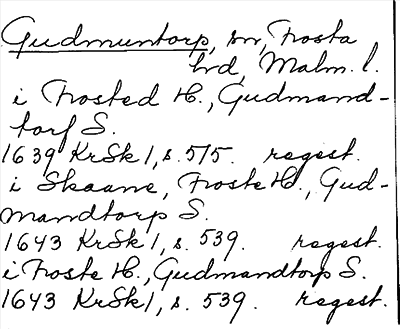 Gudmuntorp, sn, Frosta
hd, Malm. l.
i Frosted H., Gudmand-
torf S.
1639 KrSk 1, s. 515. regest.
i Skaane, Froste H., Gud-
mandtorp S.
1643 KrSk 1, s. 539. regest.
i Froste H., Gudmandtorp S.
1643 KrSk 1, s. 539. regest.